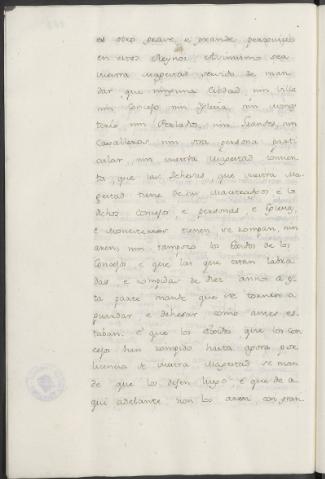 es otro grave e grande perjuicio
en estos Reynos. Assimismo sea
vuestra magestad servido de man-
dar que ninguna Cibdad, nin villa
nin Concejo nin Iglesia, nin mones-
terio nin Perlados, nin Grandes, nin
Cavalleros nin otra persona parti-
cular, nin vuestra Magestad consien-
ta, que las dehesas, que vuestra Ma-
gestad tiene de los Maestrazgos e los
dichos Concejos, e personas, e Iglesias,
e Monesterios tienen se rompan, nin
aren, nin tampoco los Exidos de los
Concejos e que las que estan labra-
das, e rompidas de diez annos a es-
ta parte mande que se tornen a
guardar e dehesar como antes es-
taban. E que los exidos que los con-
cejos han rompido hasta agora por
licencia de vuestra Magestad se man-
de que los dejen luego, e que de a-
qui adelante non los aren, con gran-